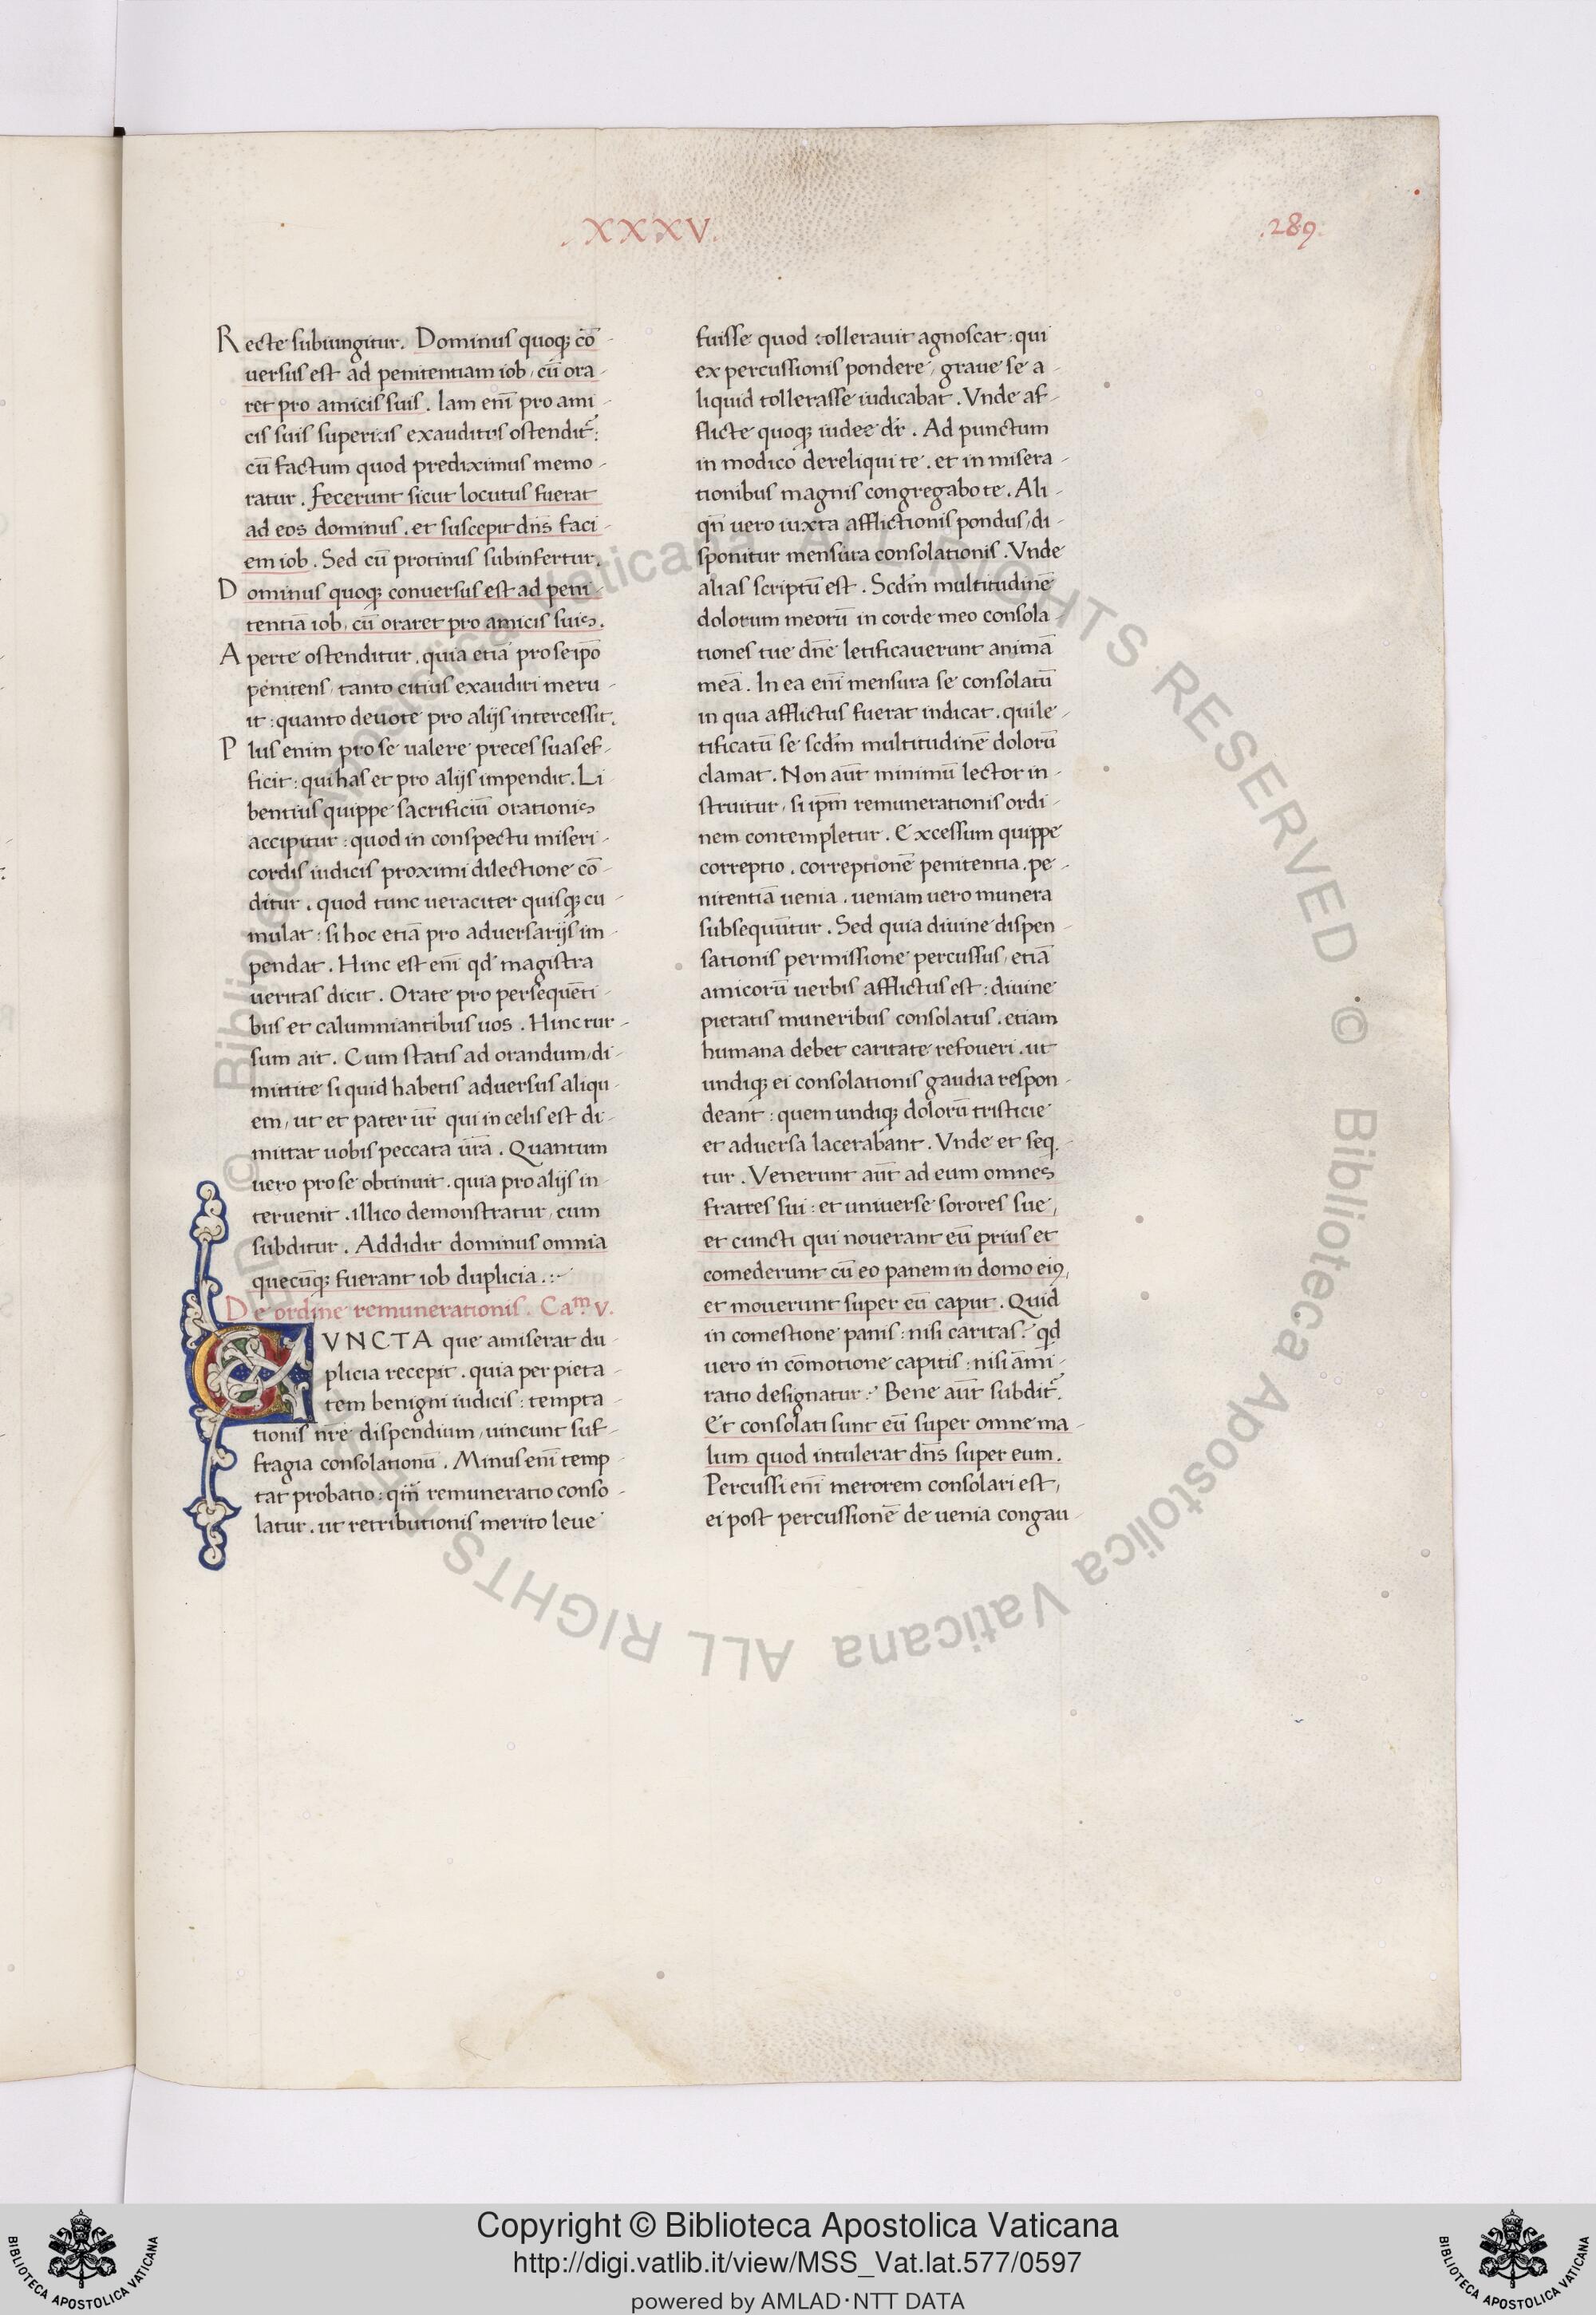 .XXXV.
.289.
Recte subiungitur. Dominus quoq; cō-
uersus est ad penitentiam iob, cū ora-
ret pro amicis suis. Iam enī pro ami-
cis suis superius exauditus ostendit᷑:
cū factum quod prediximus memo-
ratur. fecerunt sicut locutus fuerat
ad eos dominus. et suscepit dn̄s faci-
em iob. Sed cū protinus subinfertur.
Dominus quoq; conuersus est ad peni-
tentiā iob, cū oraret pro amicis suis.
Aperte ostenditur, quia etiā pro se ip̄o
penitens, tanto citius exaudiri meru-
it: quanto deuote pro alijs intercessit.
Plus enim pro se ualere preces suas ef-
ficit: qui has et pro alijs impendit. Li-
bentius quippe sacrificiū orationis
accipitur: quod in conspectu miseri-
cordis iudicis proximi dilectione cō-
ditur. quod tunc ueraciter quisq; cu-
mulat: si hoc etiā pro aduersarijs im-
pendat. Hinc est enī qd̄ magistra
ueritas dicit. Orate pro persequēti-
bus et calumniantibus uos. Hinc rur-
sum ait. Cum statis ad orandum, di-
mittite si quid habetis aduersus aliqu-
em, ut et pater ur̄ qui in celis est di-
mittat uobis peccata ur̄a. Quantum
uero pro se obtinuit. quia pro alijs in-
teruenit. illico demonstratur, cum
subditur. Addidit dominus omnia
quecūq; fuerant iob duplicia.:-
De ordine remunerationis. Caᵐ. V.
CVNCTA que amiserat du-
plicia recepit. quia per pieta-
tem benigni iudicis: tempta-
tionis nr̄e dispendium, uincunt suf-
fragia consolationū. Minus enī temp-
tat probatio: qm̄ remuneratio conso-
latur. ut retributionis merito leue
fuisse quod tollerauit agnoscat: qui
ex percussionis pondere, graue se a-
liquid tollerasse iudicabat. Vnde af-
flicte quoq; iudee dr̄. Ad punctum
in modico dereliqui te. et in misera-
tionibus magnis congregabo te. Ali-
qn̄ uero iuxta afflictionis pondus, di-
sponitur mensura consolationis. Vnde
alias scriptū est. Scd̄m multitudinē
dolorum meorū in corde meo consola
tiones tue dn̄e letificauerunt animā
meā. In ea enī mensura se consolatū
in qua afflictus fuerat indicat. qui le-
tificatū se scd̄m multitudinē dolorū
clamat. Non aut̄ minimū lector in-
struitur, si ip̄m remunerationis ordi-
nem contempletur. Excessum quippe
correptio. correptionē penitentia. pe-
nitentiā uenia. ueniam uero munera
subsequūtur. Sed quia diuine dispen-
sationis permissione percussus, etiā
amicorū uerbis afflictus est: diuine
pietatis muneribus consolatus. etiam
humana debet caritate refoueri. ut
undiq; ei consolationis gaudia respon-
deant: quem undiq; dolorū tristicie
et aduersa lacerabant. Vnde et seq̄-
tur. Venerunt aut̄ ad eum omnes
fratres sui: et uniuerse sorores sue,
et cuncti qui nouerant eū prius et
comederunt cū eo panem in domo eiꝰ,
et mouerunt super eū caput. Quid
in comestione panis: nisi caritas? qd̄
uero in cōmotione capitis: nisi āmi-
ratio designatur? Bene aut̄ subdit᷑.
Et consolati sunt eū super omne ma-
lum quod intulerat dn̄s super eum.
Percussi enī merorem consolari est,
ei post percussionē de uenia congau-
© Biblioteca Apostolica Vaticana ALL RIGHTS RESERVED
© Biblioteca Apostolica Vaticana ALL RIGHTS
BIBLIOTECA APOSTOLICA VATICANA
Copyright © Biblioteca Apostolica Vaticana
http://digi.vatlib.it/view/MSS_Vat.lat.577/0597
powered by AMLAD·NTT DATA
BIBLIOTECA APOSTOLICA VATICANA